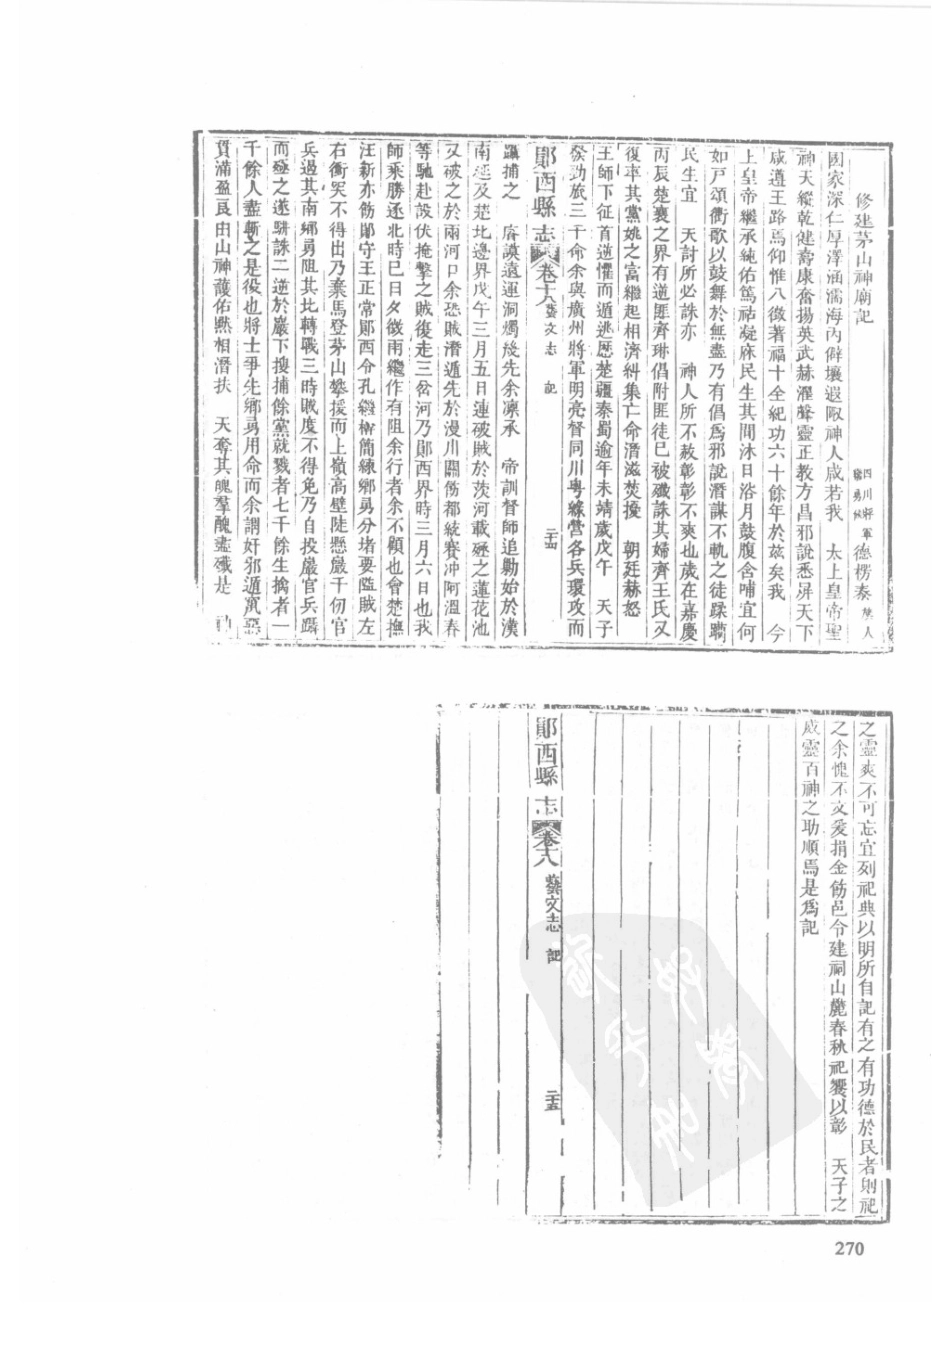 修建茅山神廟記
四川將軍 德楞泰 楚人
國家深仁厚澤涵濡海內僻壤遐陬神人咸若我 太上皇帝聖
神天縱乾健裔康奮揚英武赫濯聲靈正教方昌邪說悉屏天下
咸遵王路焉仰惟八徵著福十全紀功六十餘年於茲矣我 今
上皇帝繼承純佑篤祜凝庥民生其間沐日浴月鼓腹含哺宜何
如戸頌衢歌以鼓舞於無盡乃有倡爲邪說潛謀不軌之徒蹂躪
民生宜 天討所必誅亦 神人所不赦彰彰不爽也歲在嘉慶
丙辰楚襄之界有道匪齊琳倡附匪徒巳被殲誅其婦齊王氏又
復率其黨姚之富繼起相濟糾集亡命潛滋焚擾 朝廷赫怒
王師下征首逆懼而遁逃歷楚疆秦蜀逾年未靖歲戊午 天子
發勁旅三千命余與廣州將軍明亮督同川粤綠營各兵環攻而
鄖西縣志 卷十八 藝文志 記 二十四
躡捕之 廟謨遠運洞燭幾先余凛承 帝訓督師追勦始於漢
南延及楚北邊界戊午三月五日連破賊於茨河截殛之蓮花池
又破之於兩河口余恐賊潛遁先於漫川關飭都統賽冲阿溫春
等馳赴設伏掩擊之賊復走三岔河乃鄖西界時三月六日也我
師乘勝逐北時已日夕微雨繼作有阻余行者余不顧也會楚撫
汪新亦飭鄖守王正常鄖西令孔繼檊簡練鄉勇分堵要隘賊左
右衝突不得出乃棄馬登茅山攀援而上嶺高壁陡懸巖千仞官
兵過其南鄉勇阻其北轉戰三時賊度不得免乃自投巖官兵躡
而殛之遂駢誅二逆於巖下搜捕餘黨就戮者七千餘生擒者一
千餘人盡斬之是役也將士爭先鄉勇用命而余謂奸邪遁冥惡
貫滿盈良由山神護佑黙相潛扶 天奪其魄羣醜盡殲是 神
之靈爽不可忘宜列祀典以明所自記有之有功德於民者則祀
之余愧不文爰捐金飭邑令建祠山麓春秋祀饗以彰 天子之
威靈百神之助順焉是爲記
鄖西縣志 卷十八 藝文志 記 二十五
270